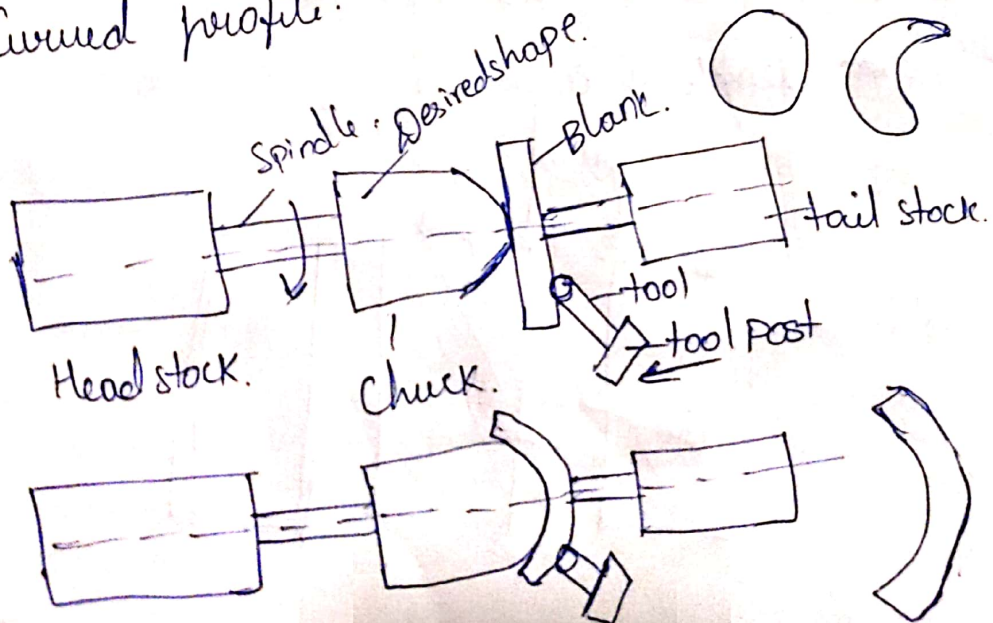 Curved profile.
Spindle.
Desired shape.
Blank.
tail stock.
tool
tool post
Head stock.
Chuck.